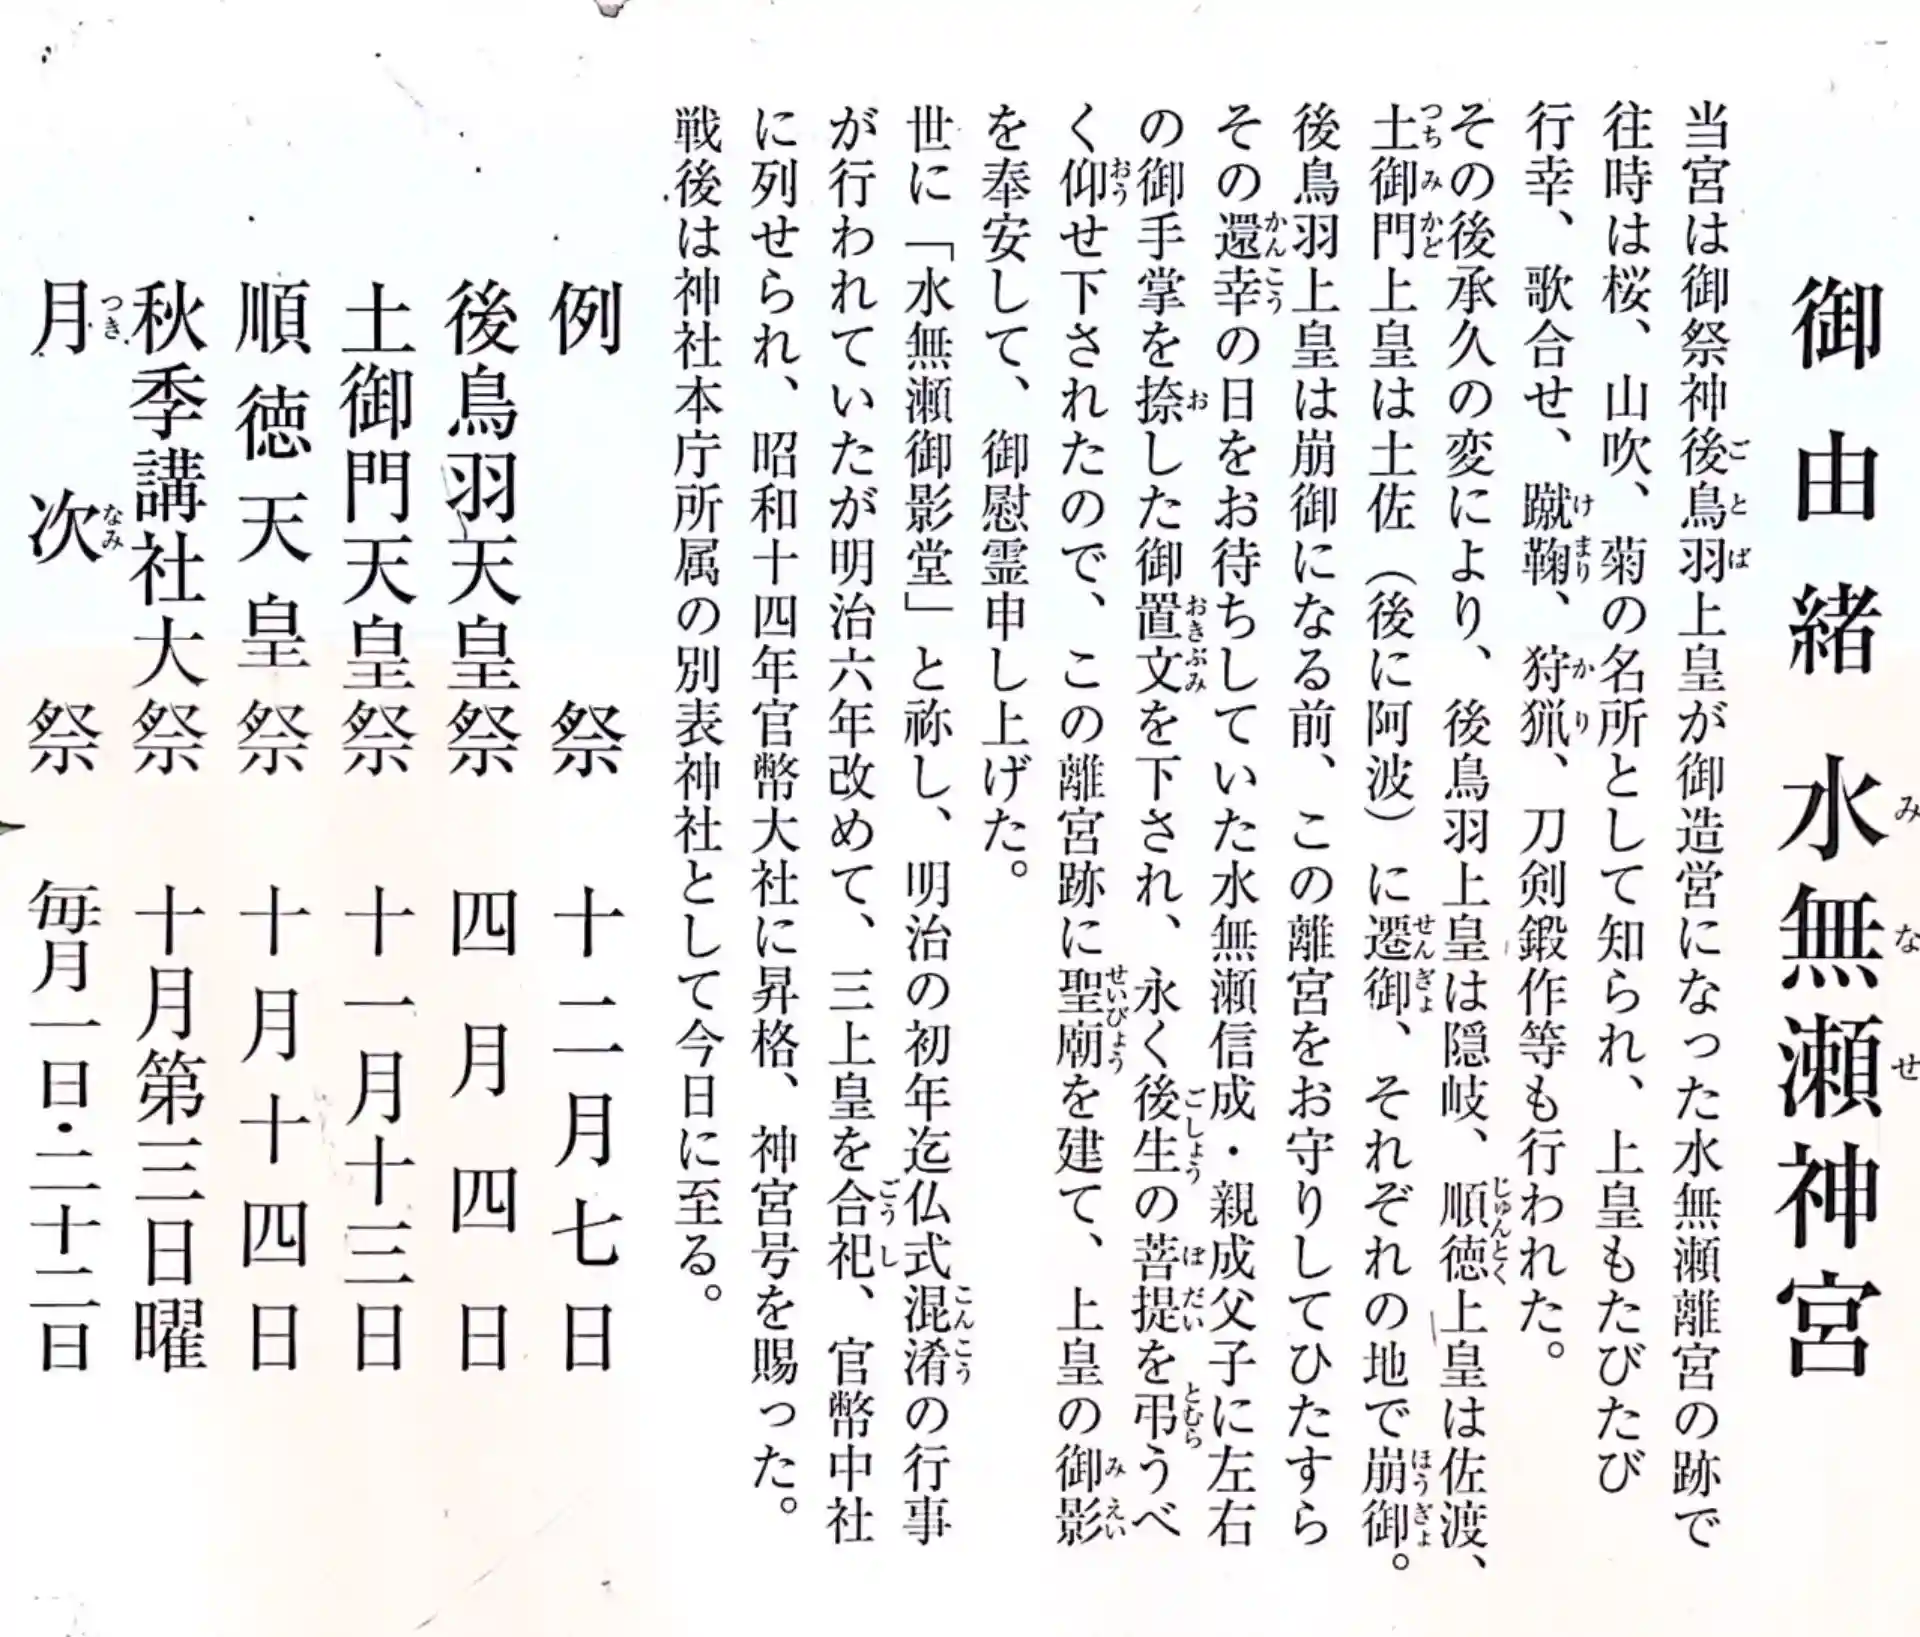 御由緒 水無瀬神宮
当宮は御祭神後鳥羽上皇が御造営になった水無瀬離宮の跡で
往時は桜、山吹、菊の名所として知られ、上皇もたびたび
行幸、歌合せ、蹴鞠、狩猟、刀剣鍛作等も行われた。
その後承久の変により、後鳥羽上皇は隠岐、順徳上皇は佐渡、
土御門上皇は土佐（後に阿波）に遷御、それぞれの地で崩御。
後鳥羽上皇は崩御になる前、この離宮をお守りしてひたすら
その還幸の日をお待ちしていた水無瀬信成・親成父子に左右
の御手掌を捺した御置文を下され、永く後生の菩提を弔うべ
く仰せ下されたので、この離宮跡に聖廟を建て、上皇の御影
を奉安して、御慰霊申し上げた。
世に「水無瀬御影堂」と祢し、明治の初年迄仏式混淆の行事
が行われていたが明治六年改めて、三上皇を合祀、官幣中社
に列せられ、昭和十四年官幣大社に昇格、神宮号を賜った。
戦後は神社本庁所属の別表神社として今日に至る。
例祭 十二月七日
後鳥羽天皇祭 四月四日
土御門天皇祭 十一月十三日
順徳天皇祭 十月十四日
秋季講社大祭 十月第三日曜
月次祭 毎月一日・二十二日